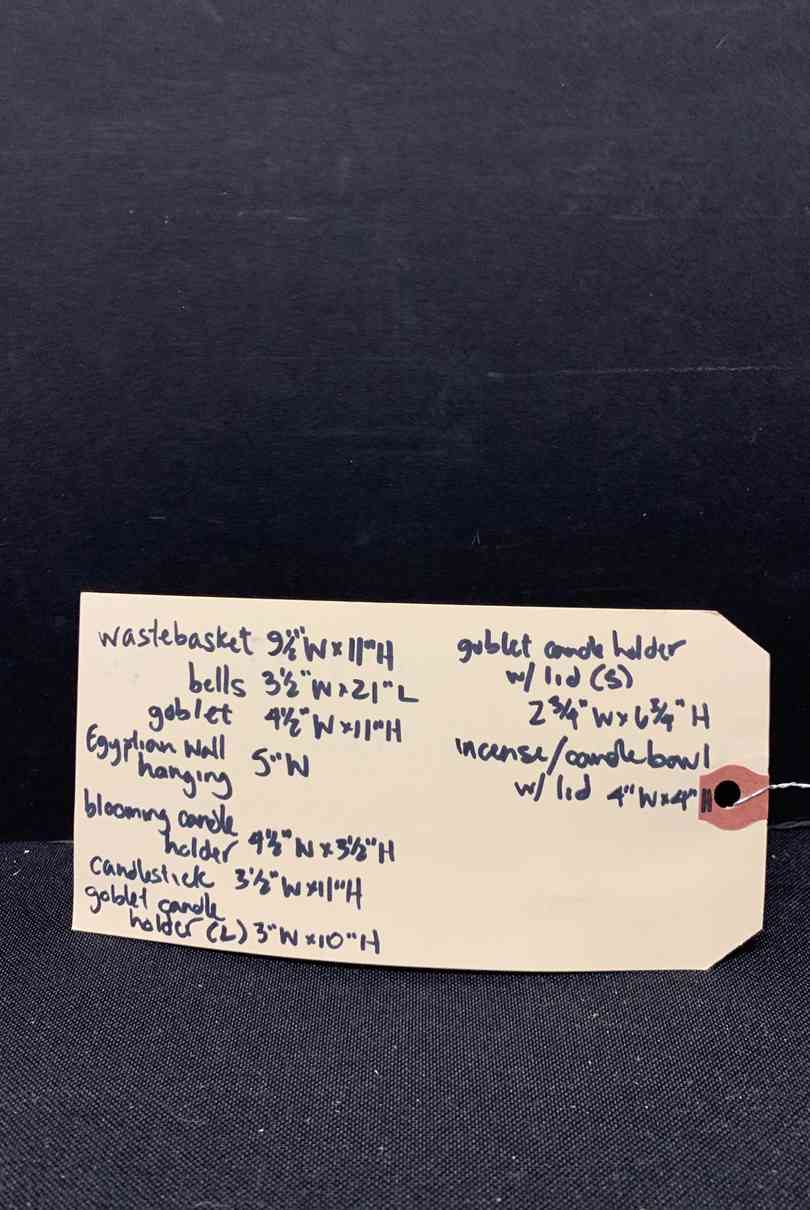 wastebasket 9½"W x 11"H
bells 3½"W x 21"L
goblet 4½"W x 11"H
Egyptian wall
hanging 5"W
blooming candle
holder 4½"W x 3½"H
candlestick 3½"W x 11"H
goblet candle
holder (L) 3"W x 10"H
goblet candle holder
w/ lid (S)
2¾"W x 6¾"H
incense/candle bowl
w/ lid 4"W x 4"H